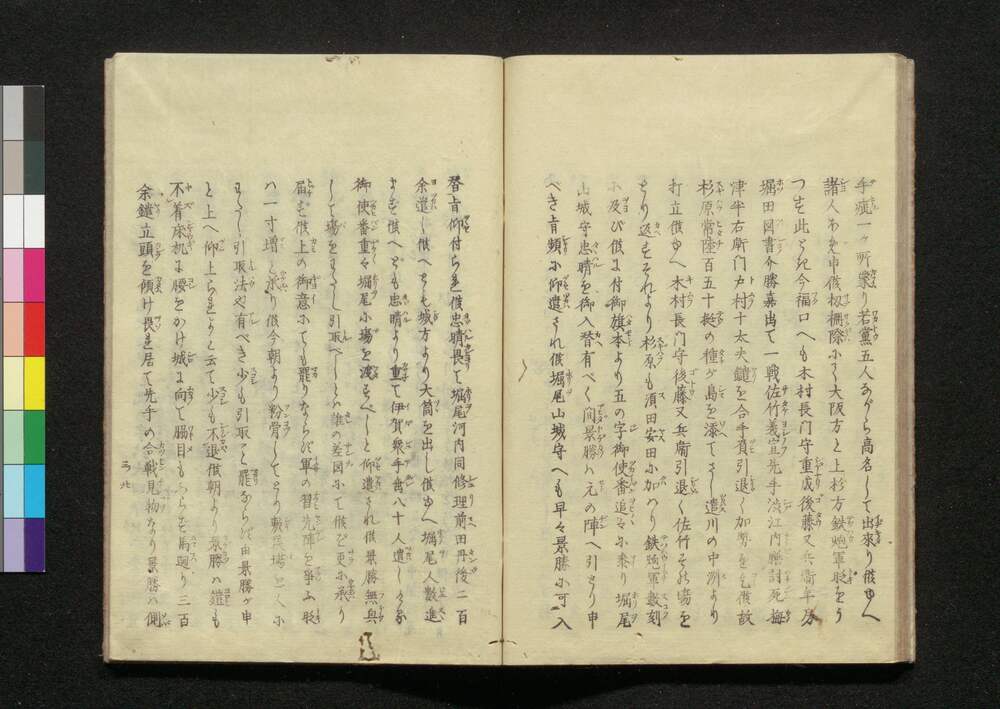 手疵一ヶ所蒙り若黨五人ながら高名して出來り候ゆへ
諸人わめき申候扨柵際にて大阪方と上杉方鉄炮軍殷をう
つを此とき今福口へも木村長門守重成後藤又兵衛年房
堀田図書介勝嘉出て一戦佐竹義宣先手渋江内膳討死梅
津半右衛門戸村十太夫鑓を合手負引退く加勢を乞候故
杉原常陸百五十挺の種ヶ島を添てさし遣川の中洲より
打立候ゆへ木村長門守後藤又兵衛引退く佐竹その場を
とり返すそれより杉原も須田安田に加ハり鉄炮軍数刻
に及び候に付御旗本よりも五の字御使番追々に乗り堀尾
山城守忠晴を御入替有べく間景勝ハ元の陣へ引とり申
べき旨頻に仰遣され候堀尾山城守へも早々景勝に可入
替旨仰付られ候忠晴畏て堀尾河内同修理前田丹後二百
余遣し候へども城方より大筒を出し候ゆへ堀尾人数進
まず候へども忠晴より重て伊賀衆手銃八十人遣し
御使番重て堀尾に場を渡すべしと仰遣され候景勝無興
して場をわたし引取べしとハ誰の差図にて候ぞ更に承り
届ず候上の御意にても罷りならず候軍の習先陣を争ふ殷
ハ一寸増と承り候今朝より粉骨してとり敷候場
わたし引取法や有べき少も引取事罷ならず候由景勝が申
と上へ仰上られよと云て少も不退候朝より景勝ハ鎧も
不着床机に腰をかけ城に向て脇目もふらず馬廻り三百
余鑓立頭を傾け畏り居て先手の合戦見物なり景勝の側